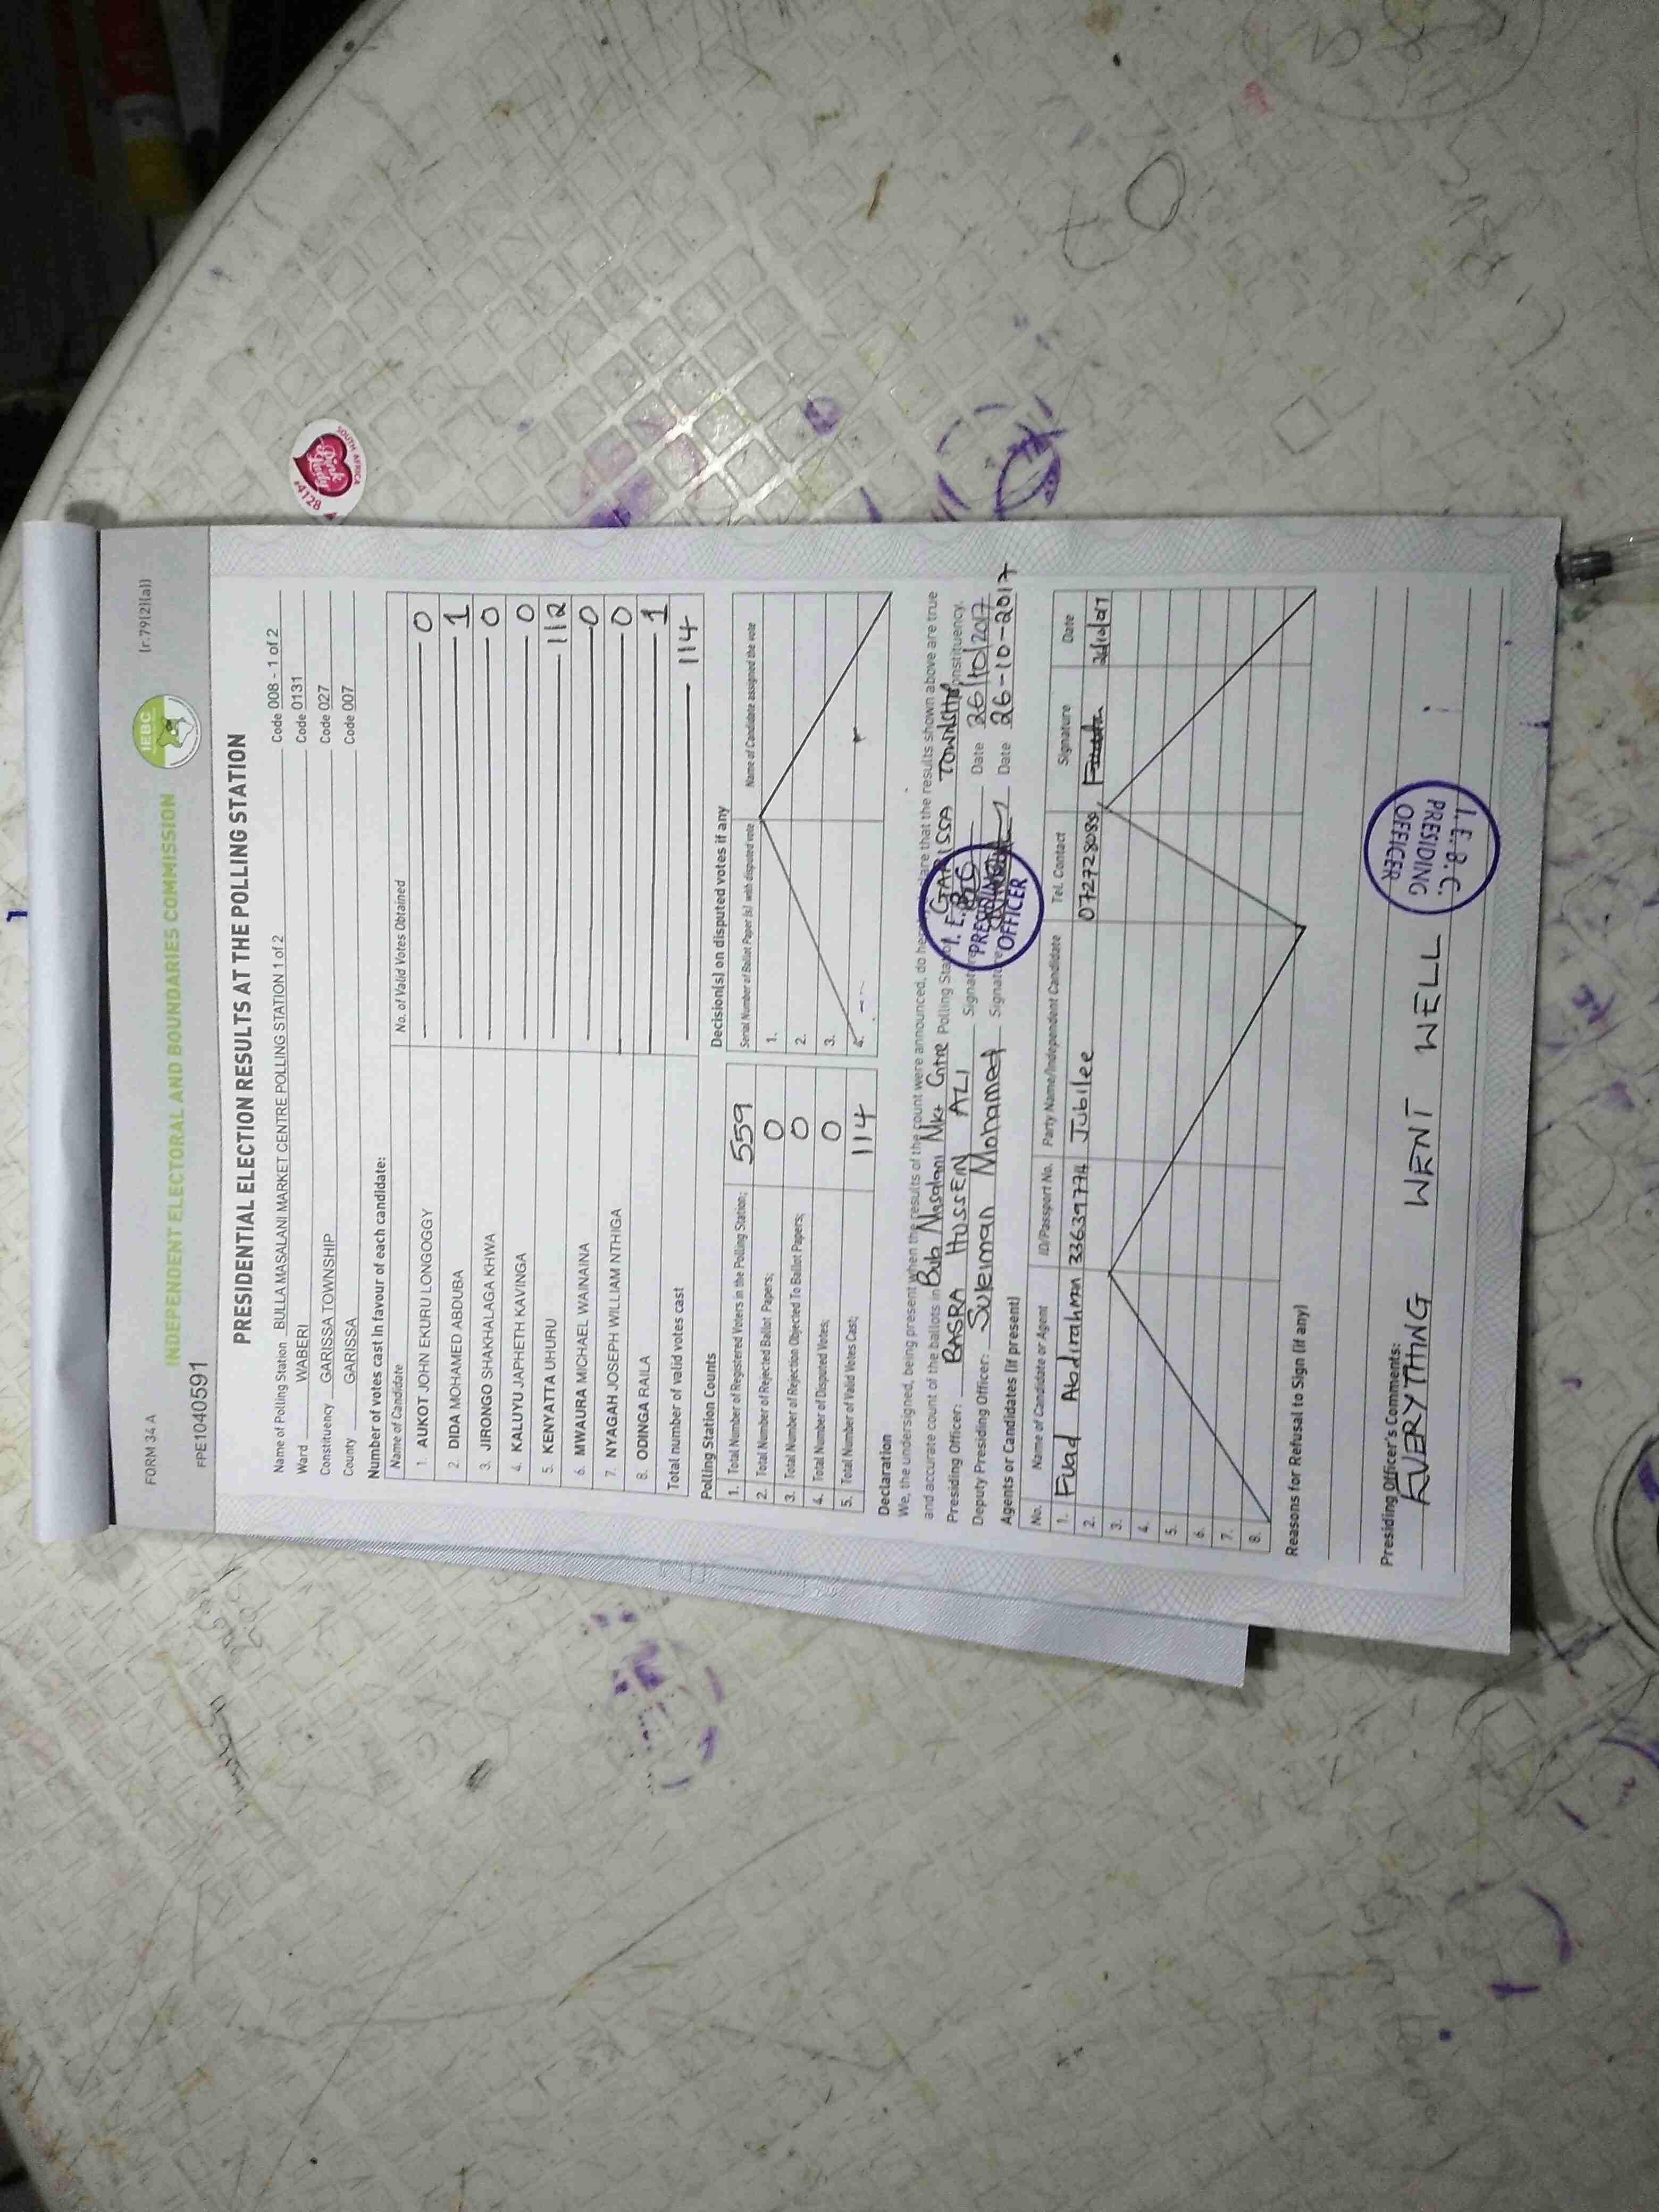 FORM 34 A
(r.79(2)(a))
IEBC
INDEPENDENT ELECTORAL AND BOUNDARIES COMMISSION
FPE1040591
PRESIDENTIAL ELECTION RESULTS AT THE POLLING STATION
Name of Polling Station BULLA MASALANI MARKET CENTRE POLLING STATION 1 of 2 Code 008 - 1 of 2
Ward WABERI Code 0131
Constituency GARISSA TOWNSHIP Code 027
County GARISSA Code 007
Number of votes cast in favour of each candidate:
Name of Candidate No. of Valid Votes Obtained
1. AUKOT JOHN EKURU LONGOGGY 0
2. DIDA MOHAMED ABDUBA 1
3. JIRONGO SHAKHALAGA KHWA 0
4. KALUYU JAPHETH KAVINGA 0
5. KENYATTA UHURU 112
6. MWAURA MICHAEL WAINAINA 0
7. NYAGAH JOSEPH WILLIAM NTHIGA 0
8. ODINGA RAILA 1
Total number of valid votes cast 114
Polling Station Counts
1. Total Number of Registered Voters in the Polling Station; 559
2. Total Number of Rejected Ballot Papers; 0
3. Total Number of Rejection Objected To Ballot Papers; 0
4. Total Number of Disputed Votes; 0
5. Total Number of Valid Votes Cast; 114
Decision(s) on disputed votes if any
Serial Number of Ballot Paper (s) with disputed vote Name of Candidate assigned the vote
1.
2.
3.
4.
Declaration
We, the undersigned, being present when the results of the count were announced, do hereby declare that the results shown above are true
and accurate count of the ballots in Bula Masalani Mkt Cntre Polling Station GARISSA TOWNSHIP Constituency.
Presiding Officer: BASRA HUSSEIN ALI Signature Date 26/10/2017
Deputy Presiding Officer: Suleiman Mohamed Signature Date 26-10-2017
I.E.B.C.
PRESIDING
OFFICER
Agents or Candidates (if present)
No. Name of Candidate or Agent ID/Passport No. Party Name/Independent Candidate Tel. Contact Signature Date
1. Fuad Abdirahman 33639774 Jubilee 0727728089
2.
3.
4.
5.
6.
7.
8.
Reasons for Refusal to Sign (if any)
Presiding Officer's Comments:
EVERYTHING WENT WELL
I.E.B.C.
PRESIDING
OFFICER
#4128
Pink Lady
SOUTH AFRICA